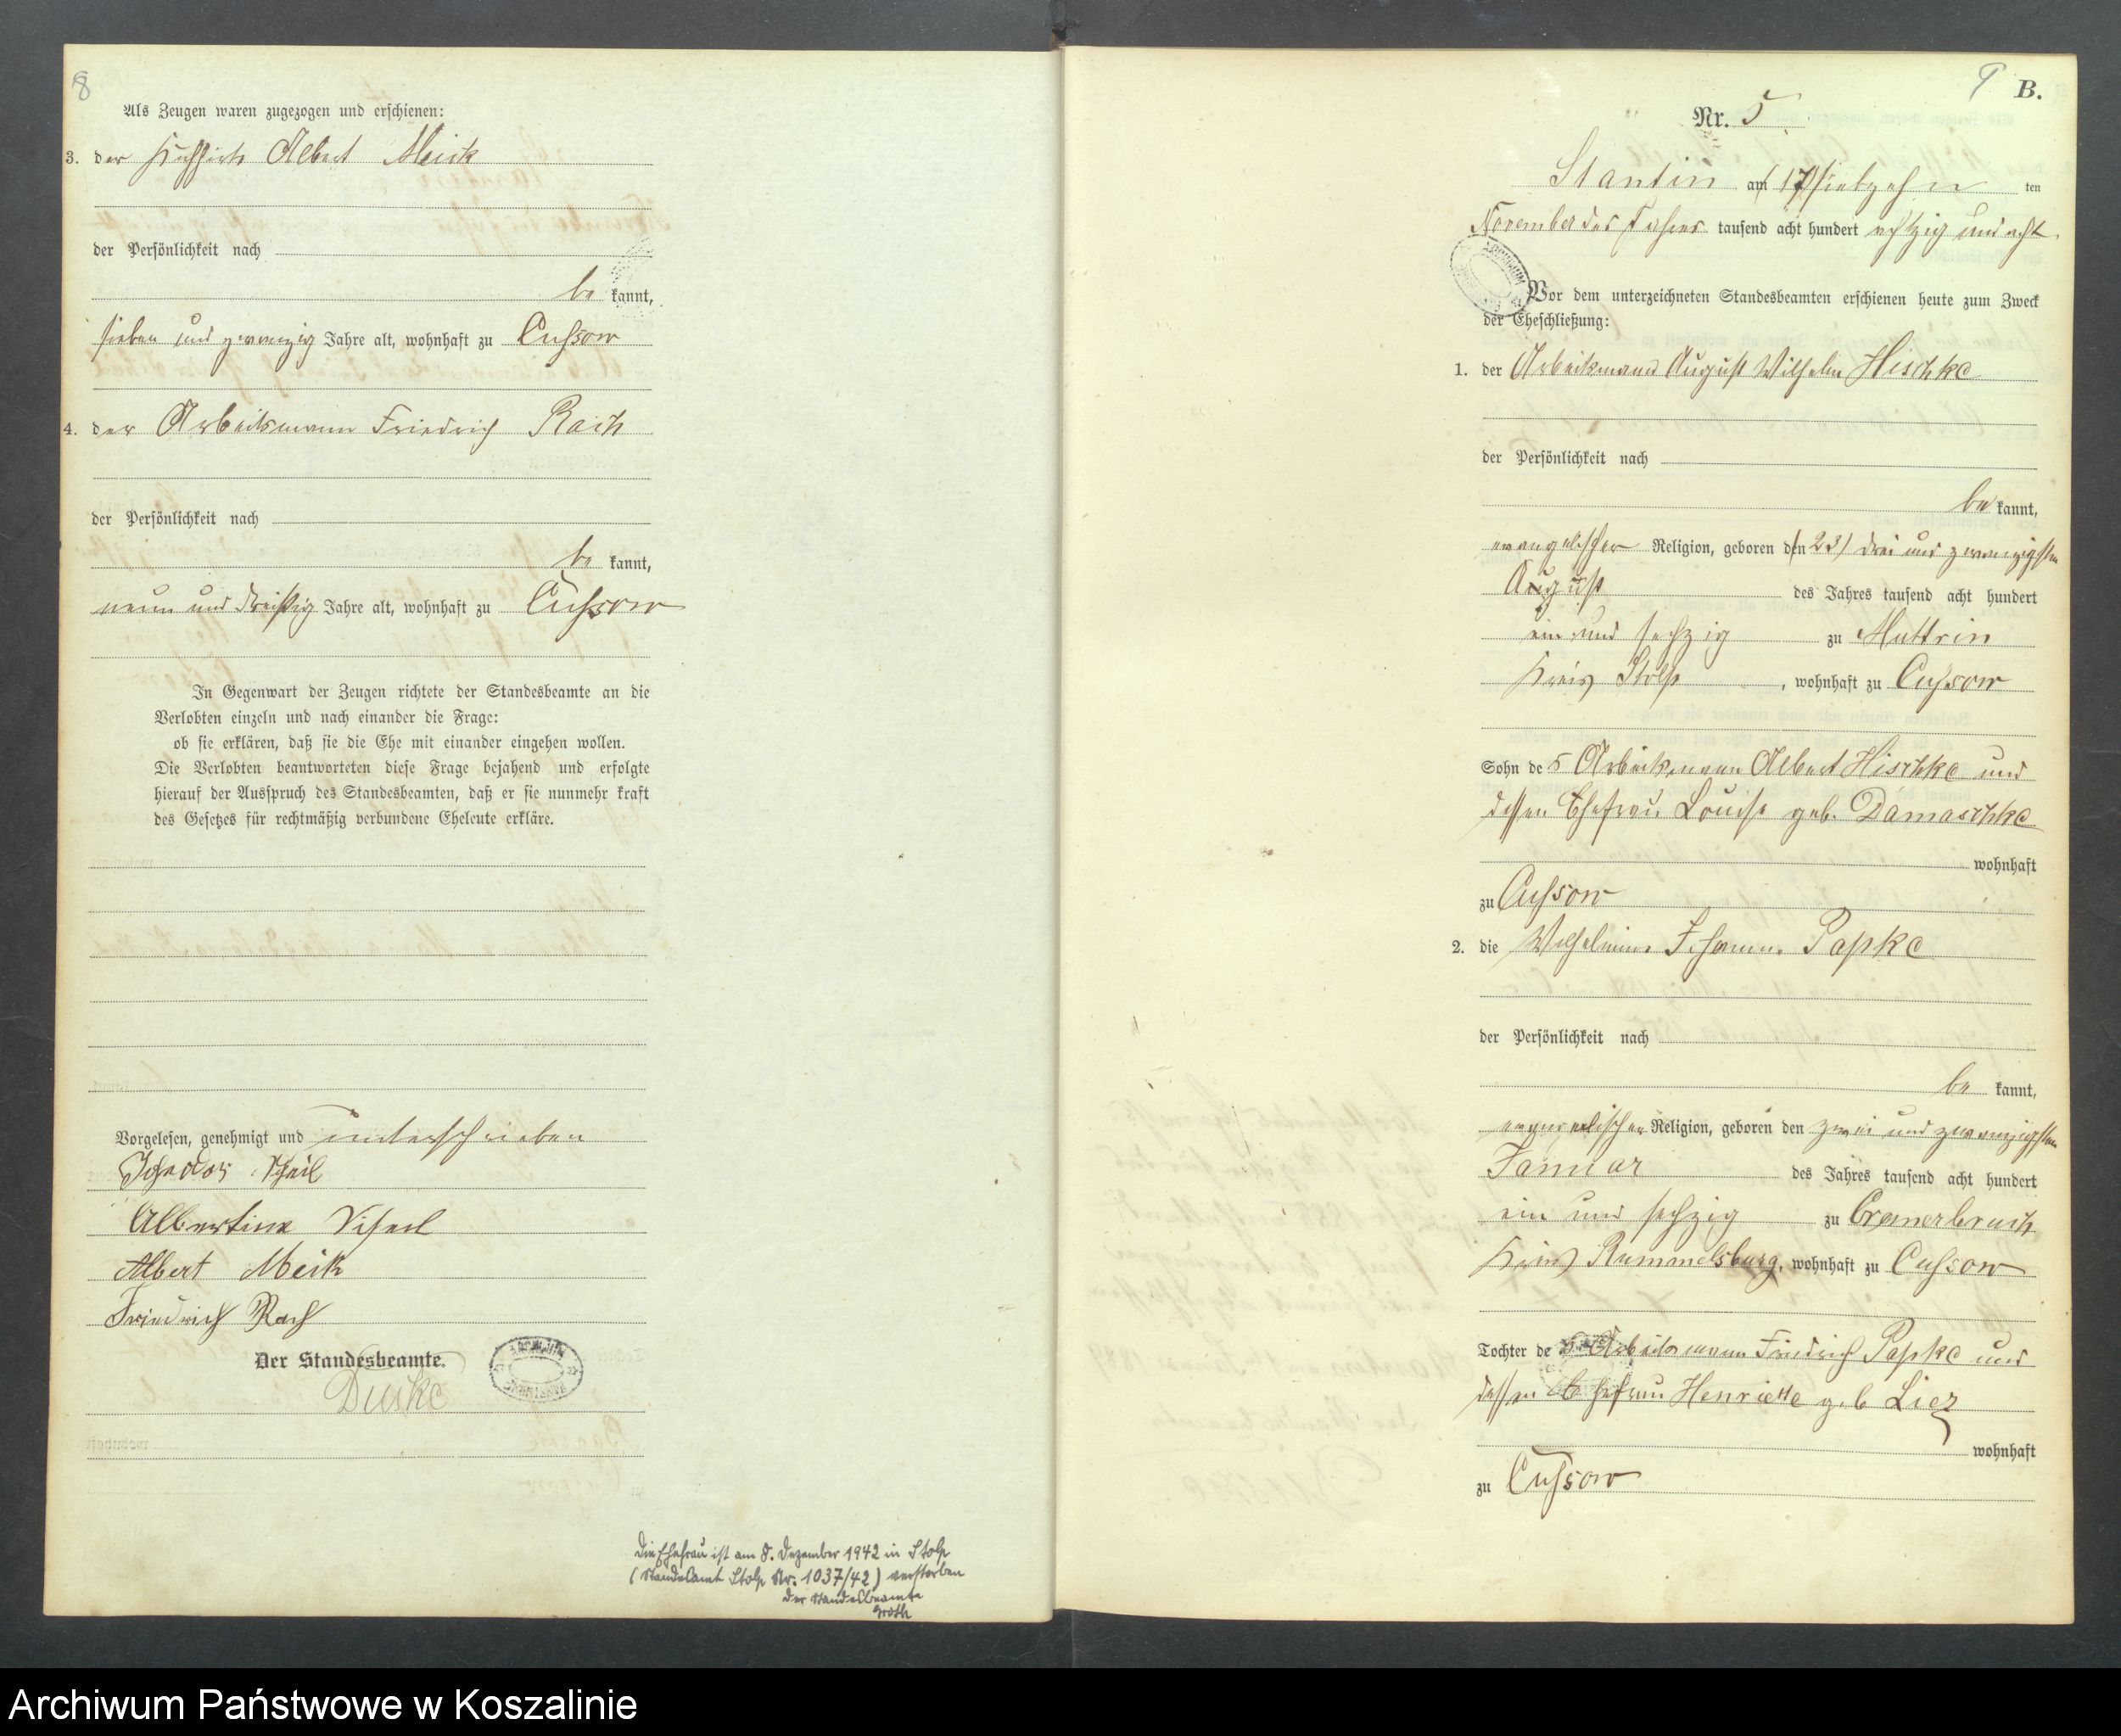 8
Als Zeugen waren zugezogen und erschienen:
3. der Albert Meick
der Persönlichkeit nach
be kannt,
sieben und zwanzig Jahre alt, wohnhaft zu Cussow
4. der Arbeitsmann Friedrich Rach
der Persönlichkeit nach
be kannt,
neun und dreißig Jahre alt, wohnhaft zu Cussow
In Gegenwart der Zeugen richtete der Standesbeamte an die
Verlobten einzeln und nach einander die Frage:
ob sie erklären, daß sie die Ehe mit einander eingehen wollen.
Die Verlobten beantworteten diese Frage bejahend und erfolgte
hierauf der Ausspruch des Standesbeamten, daß er sie nunmehr kraft
des Gesetzes für rechtmäßig verbundene Eheleute erkläre.
Vorgelesen, genehmigt und unterschrieben
Albertine
Albert Meik
Friedrich Rach
Der Standesbeamte.
Die Ehefrau ist am 8. Dezember 1942 in Stolp
(Standesamt Stolp Nr. 1037/42) verstorben
Der Standesbeamte
Groth
9
B.
Nr. 5
Stantin am (17) siebzehn ten
November des Jahres tausend acht hundert achtzig und acht.
Vor dem unterzeichneten Standesbeamten erschienen heute zum Zweck
der Eheschließung:
1. der Arbeitsmann August Wilhelm Hischke
der Persönlichkeit nach
be kannt,
evangelischer Religion, geboren den (23) drei und zwanzigsten
August des Jahres tausend acht hundert
ein und sechzig zu Muttrin
Kreis Stolp, wohnhaft zu Cussow
Sohn des Arbeitsmann Albert Hischke und
dessen Ehefrau Louise geb. Damaschke
wohnhaft
zu Cussow
2. die Wilhelmine Johanne Papke
der Persönlichkeit nach
be kannt,
evangelischer Religion, geboren den zwei und zwanzigsten
Januar des Jahres tausend acht hundert
ein und sechzig zu Cremerbruch
Kreis Rummelsburg, wohnhaft zu Cussow
Tochter des Arbeitsmann Friedrich Papke und
dessen Ehefrau Henriette geb Liez
wohnhaft
zu Cussow
Archiwum Państwowe w Koszalinie